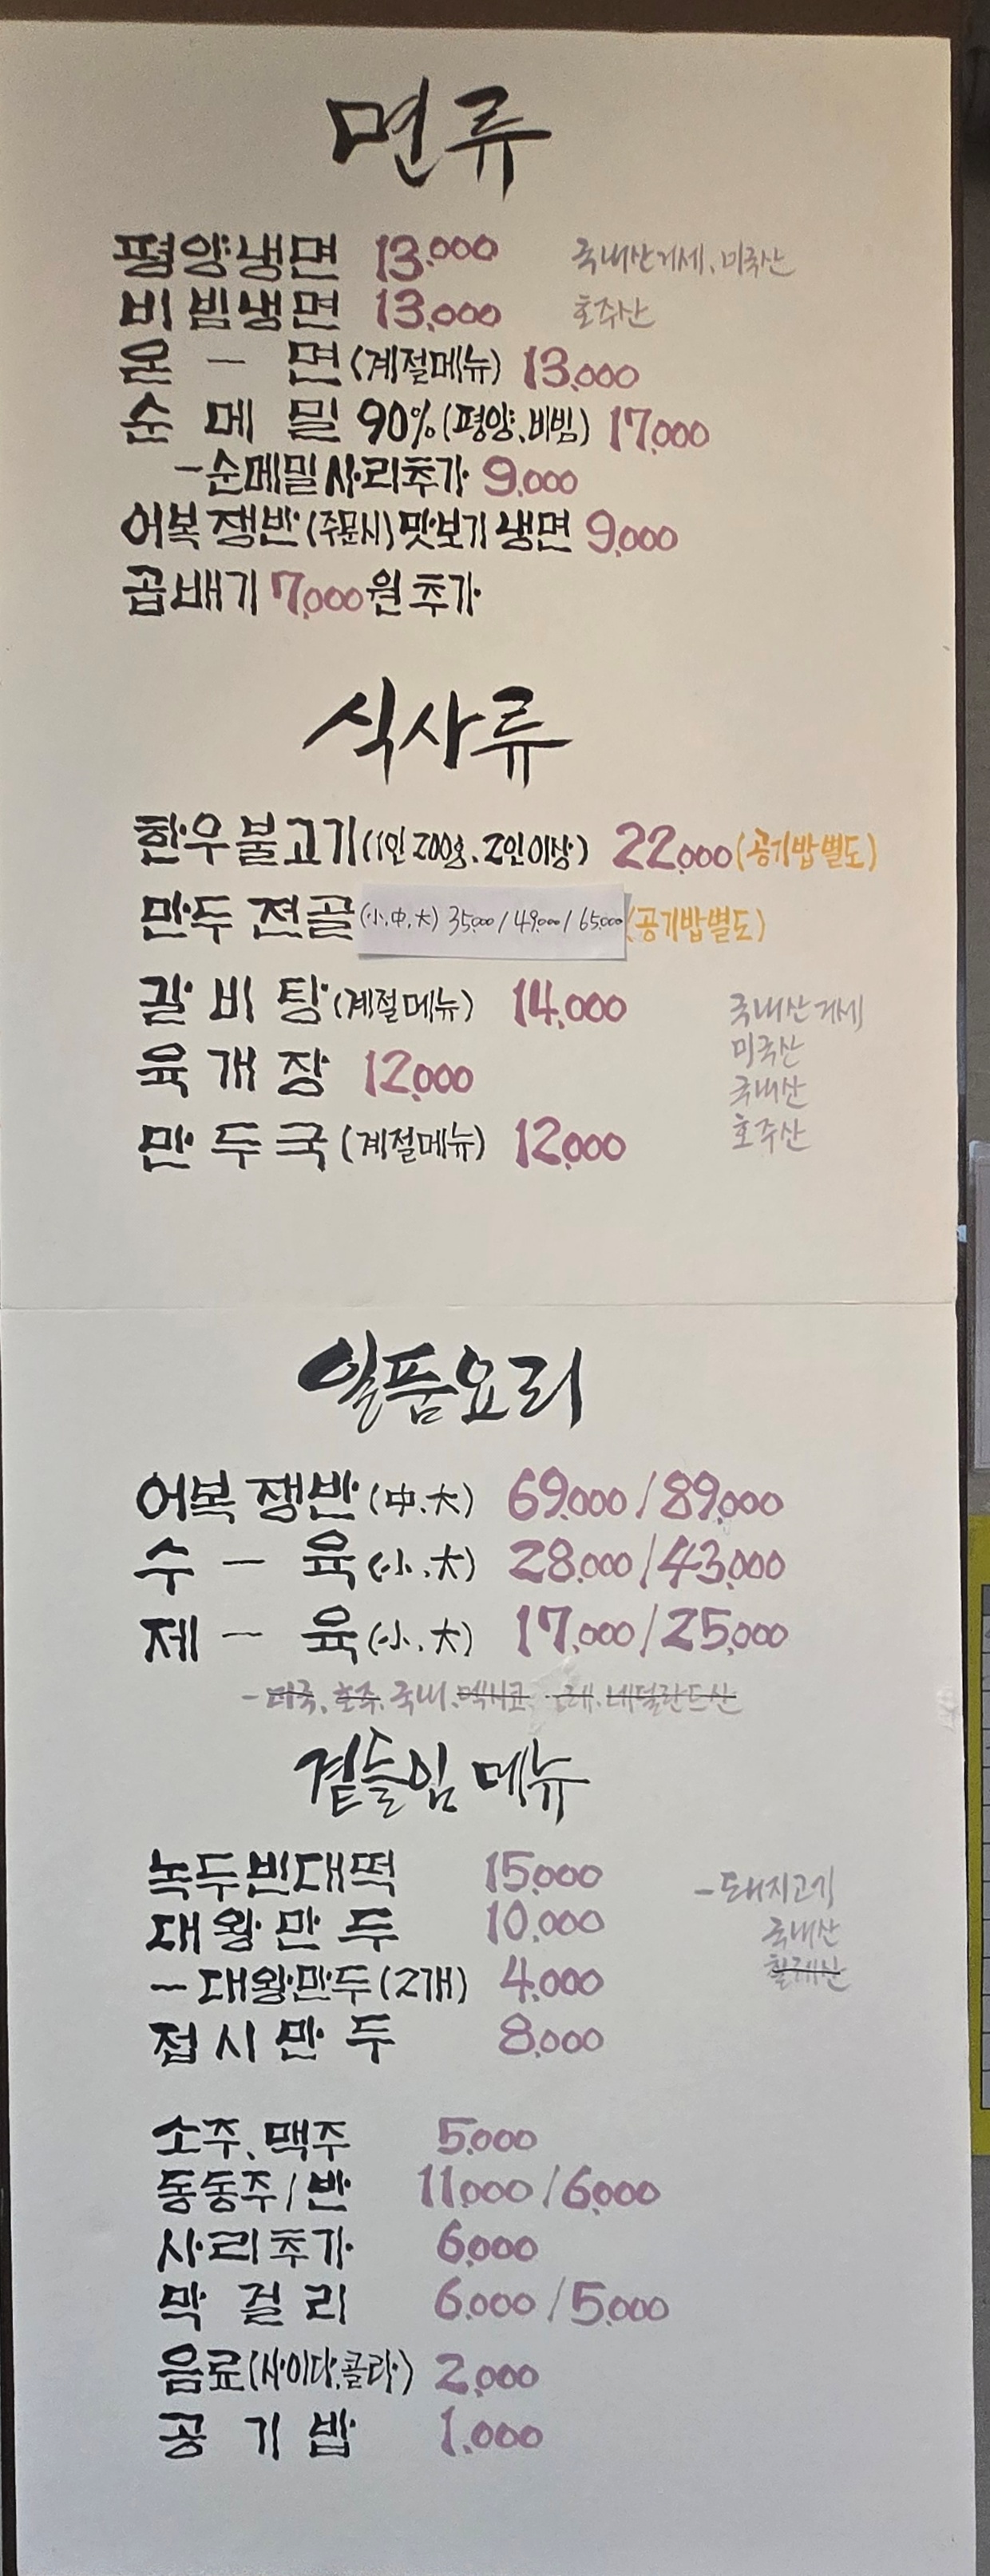 면류
평양냉면 13,000 국내산거세, 미국산
비빔냉면 13,000 호주산
온 - 면(계절메뉴) 13,000
순 메 밀 90%(평양,비빔) 17,000
-순메밀사리추가 9,000
어복쟁반(주문시)맛보기냉면 9,000
곱배기 7,000원추가
식사류
한우불고기(1인200g, 2인이상) 22,000(공기밥별도)
만두전골(小,中,大) 35,000/49,000/65,000(공기밥별도)
갈 비 탕(계절메뉴) 14,000 국내산거세
미국산
육 개 장 12,000 국내산
만 두 국(계절메뉴) 12,000 호주산
일품요리
어복쟁반(中.大) 69,000/89,000
수 - 육(小.大) 28,000/43,000
제 - 육(小.大) 17,000/25,000
-미국, 호주, 국내, 멕시코 네덜란드산
곁들임메뉴
녹두빈대떡 15,000 -돼지고기
대왕만두 10,000 국내산
-대왕만두(2개) 4,000 칠레산
접시만두 8,000
소주, 맥주 5,000
동동주/반 11,000/6,000
사리추가 6,000
막 걸 리 6,000/5,000
음료(사이다,콜라) 2,000
공 기 밥 1,000